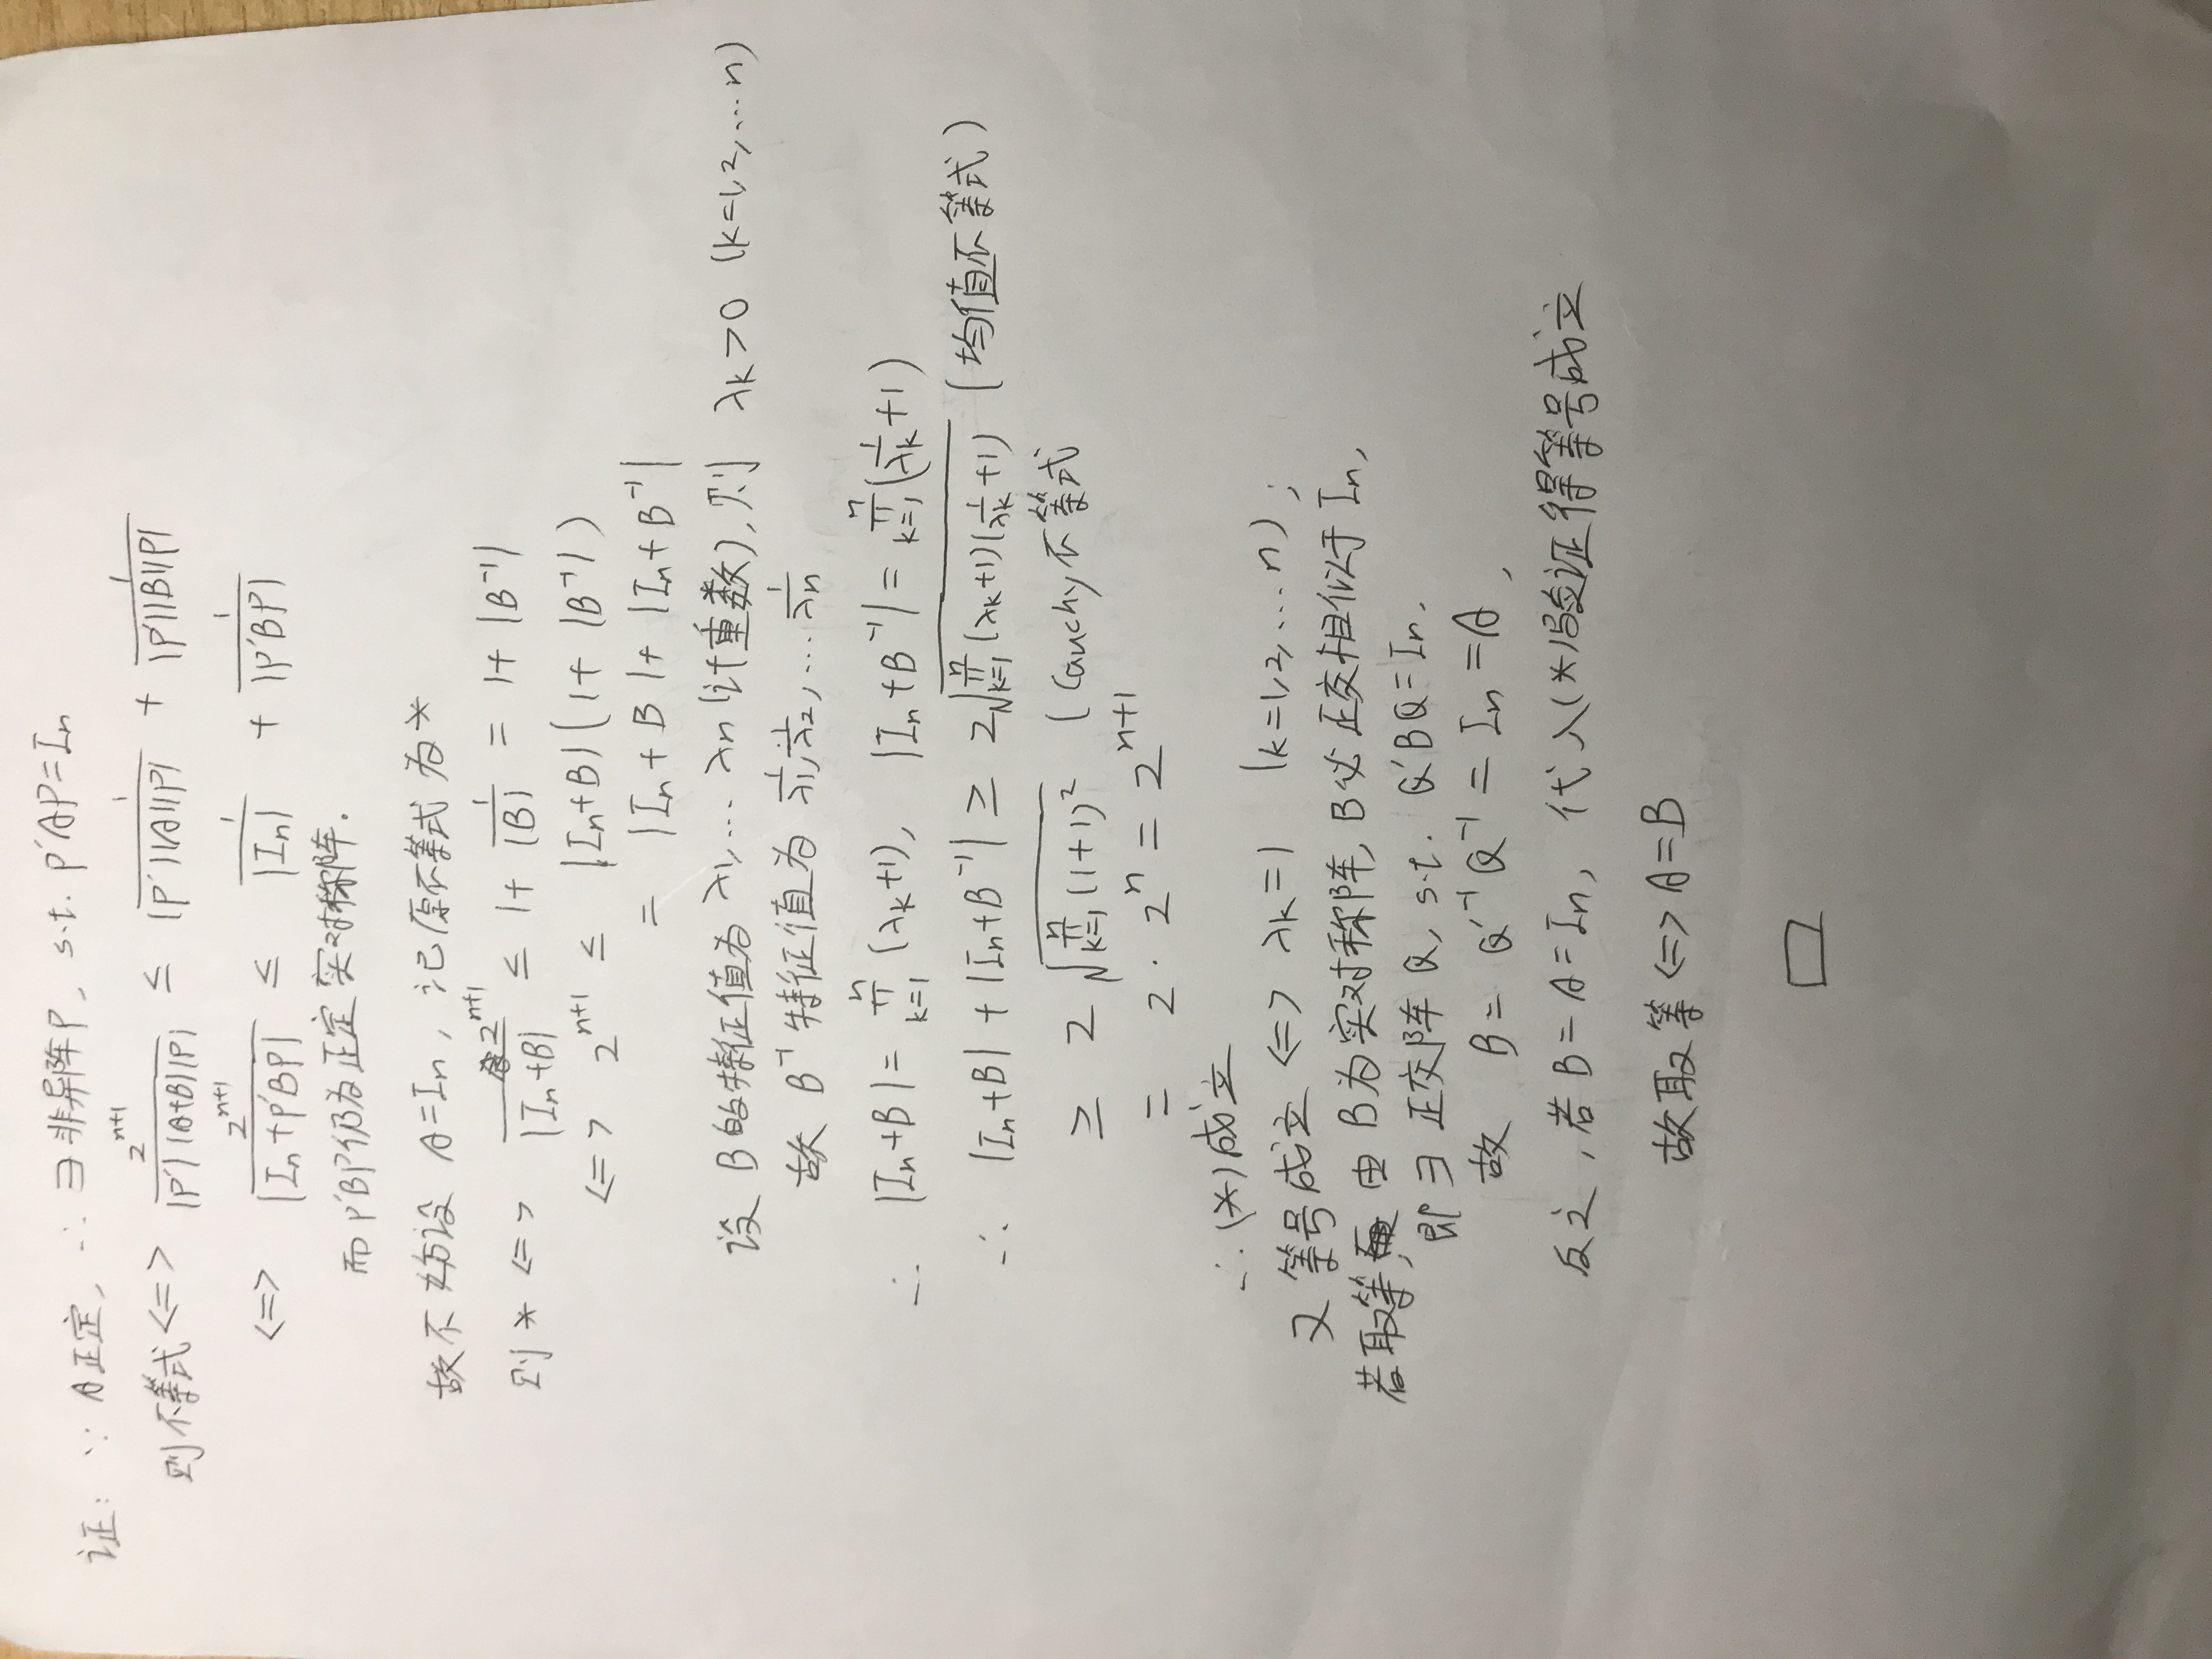 证: ∵ A正定, ∴ ∃非异阵P, s.t. P'AP=In
则不等式<=> 2^{n+1}/(|P'||A+B||P|) ≤ 1/(|P'||A||P|) + 1/(|P'||B||P|)
<=> 2^{n+1}/|In+P'BP| ≤ 1/|In| + 1/|P'BP|
而P'BP仍为正定实对称阵.
故不妨设 A=In, 记原不等式为*
则 * <=> 2^{n+1}/|In+B| ≤ 1+ 1/|B| = 1+|B^{-1}|
<=> 2^{n+1} ≤ |In+B|(1+|B^{-1}|)
= |In+B|+|In+B^{-1}|
设 B的特征值为 λ1,… λn(计重数),则 λk>0 (k=1,2,…n)
故 B^{-1}特征值为 1/λ1,1/λ2,…1/λn
∴ |In+B|= ∏_{k=1}^{n}(λk+1), |In+B^{-1}|= ∏_{k=1}^{n}(1/λk+1)
∴ |In+B|+|In+B^{-1}| ≥ 2√(∏_{k=1}^{n}(λk+1)(1/λk+1)) (均值不等式)
≥ 2√(∏_{k=1}^{n}(1+1)^2) (Cauchy不等式
= 2·2^n=2^{n+1}
∴(*)成立
又 等号成立 <=> λk=1 (k=1,2,…n);
若取等, 由 B为实对称阵, B必正交相似于In,
即∃ 正交阵 Q, s.t. Q'BQ=In.
故 B= Q'^{-1}Q^{-1}=In=A,
反之, 若B=A=In, 代入(*)验证得等号成立
故取等<=> A=B
□